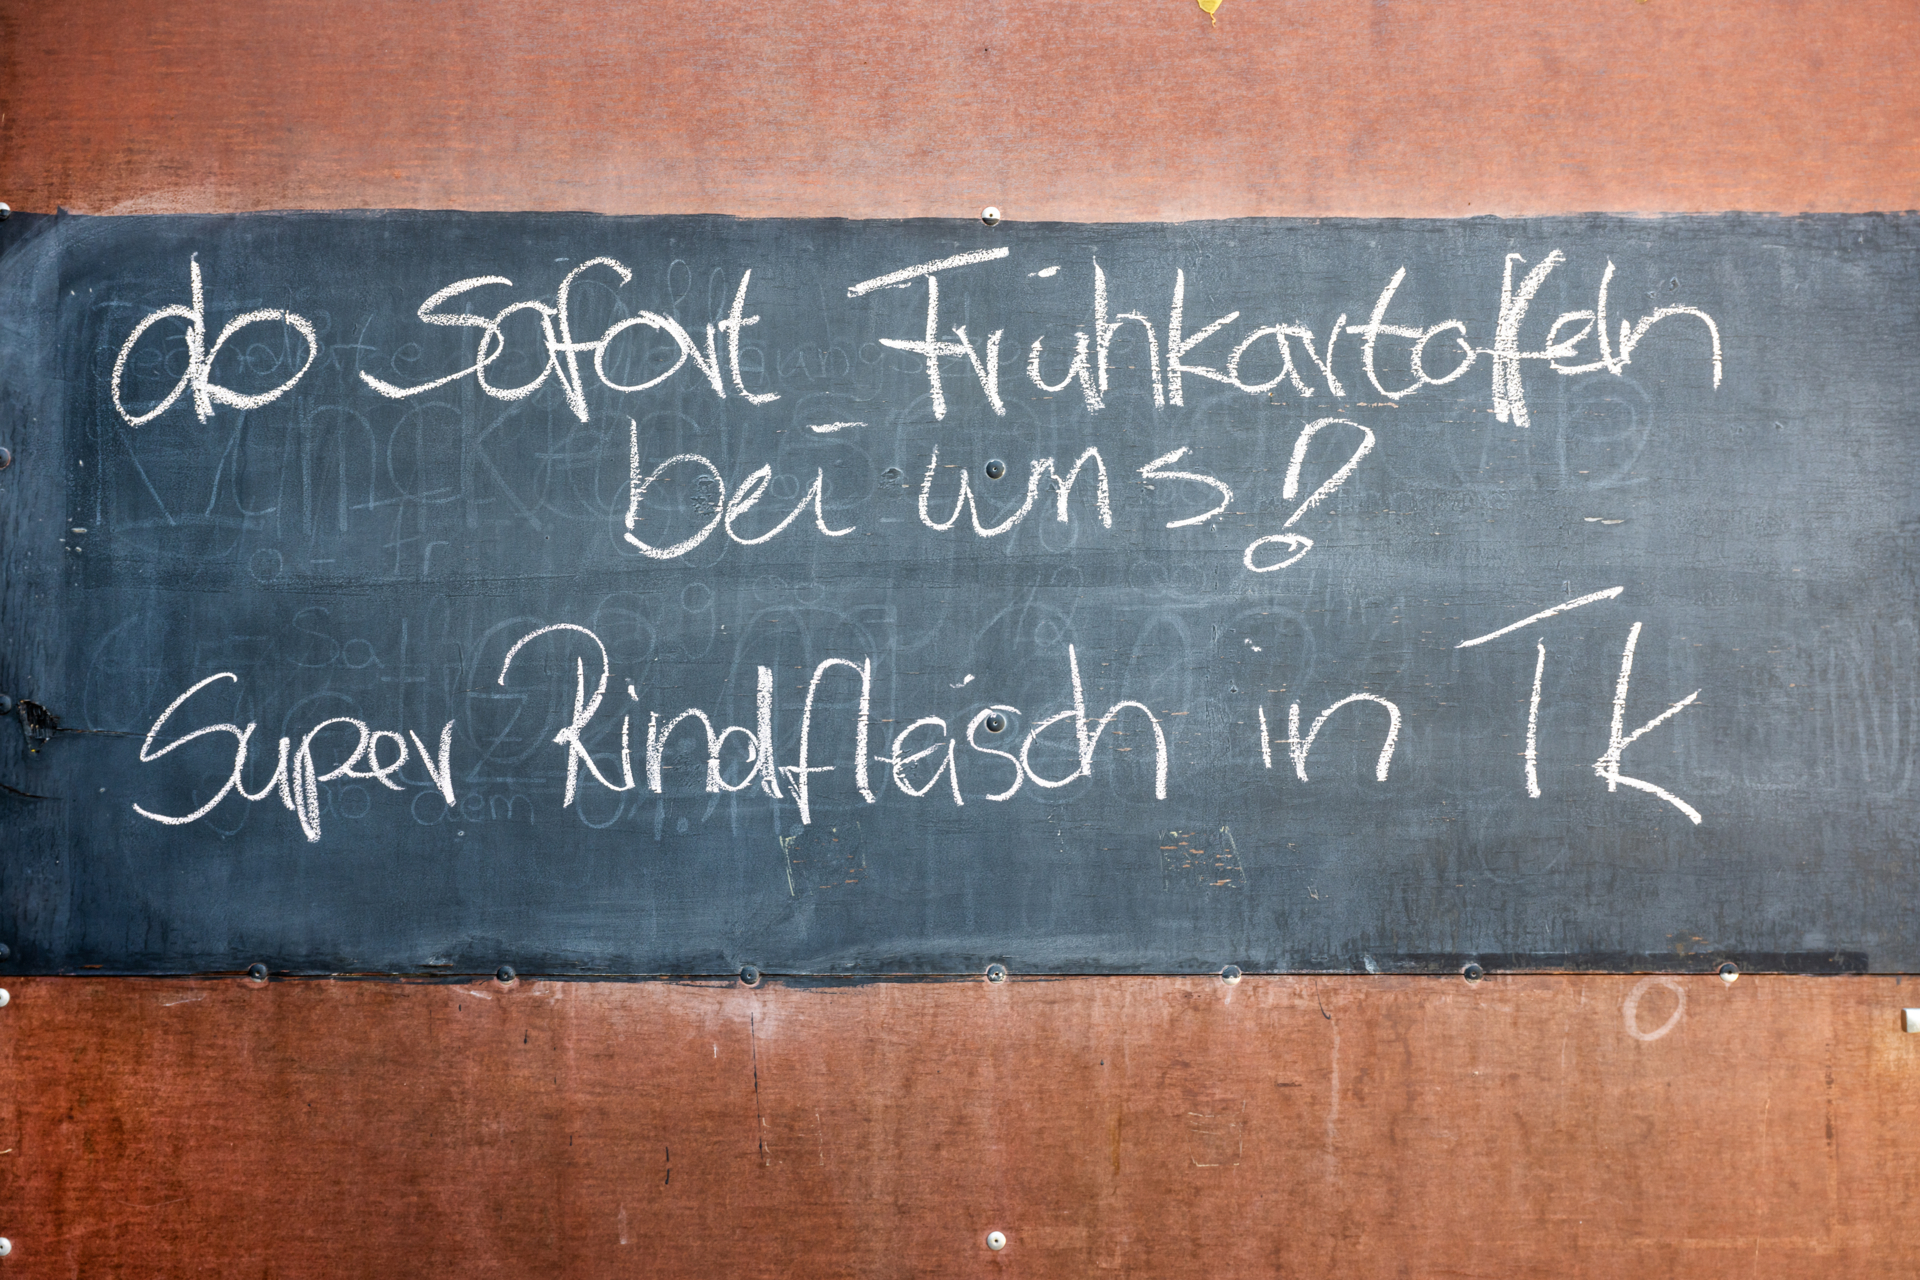 ab sofort Frühkartoffeln
bei uns!
Super Rindfleisch in TK